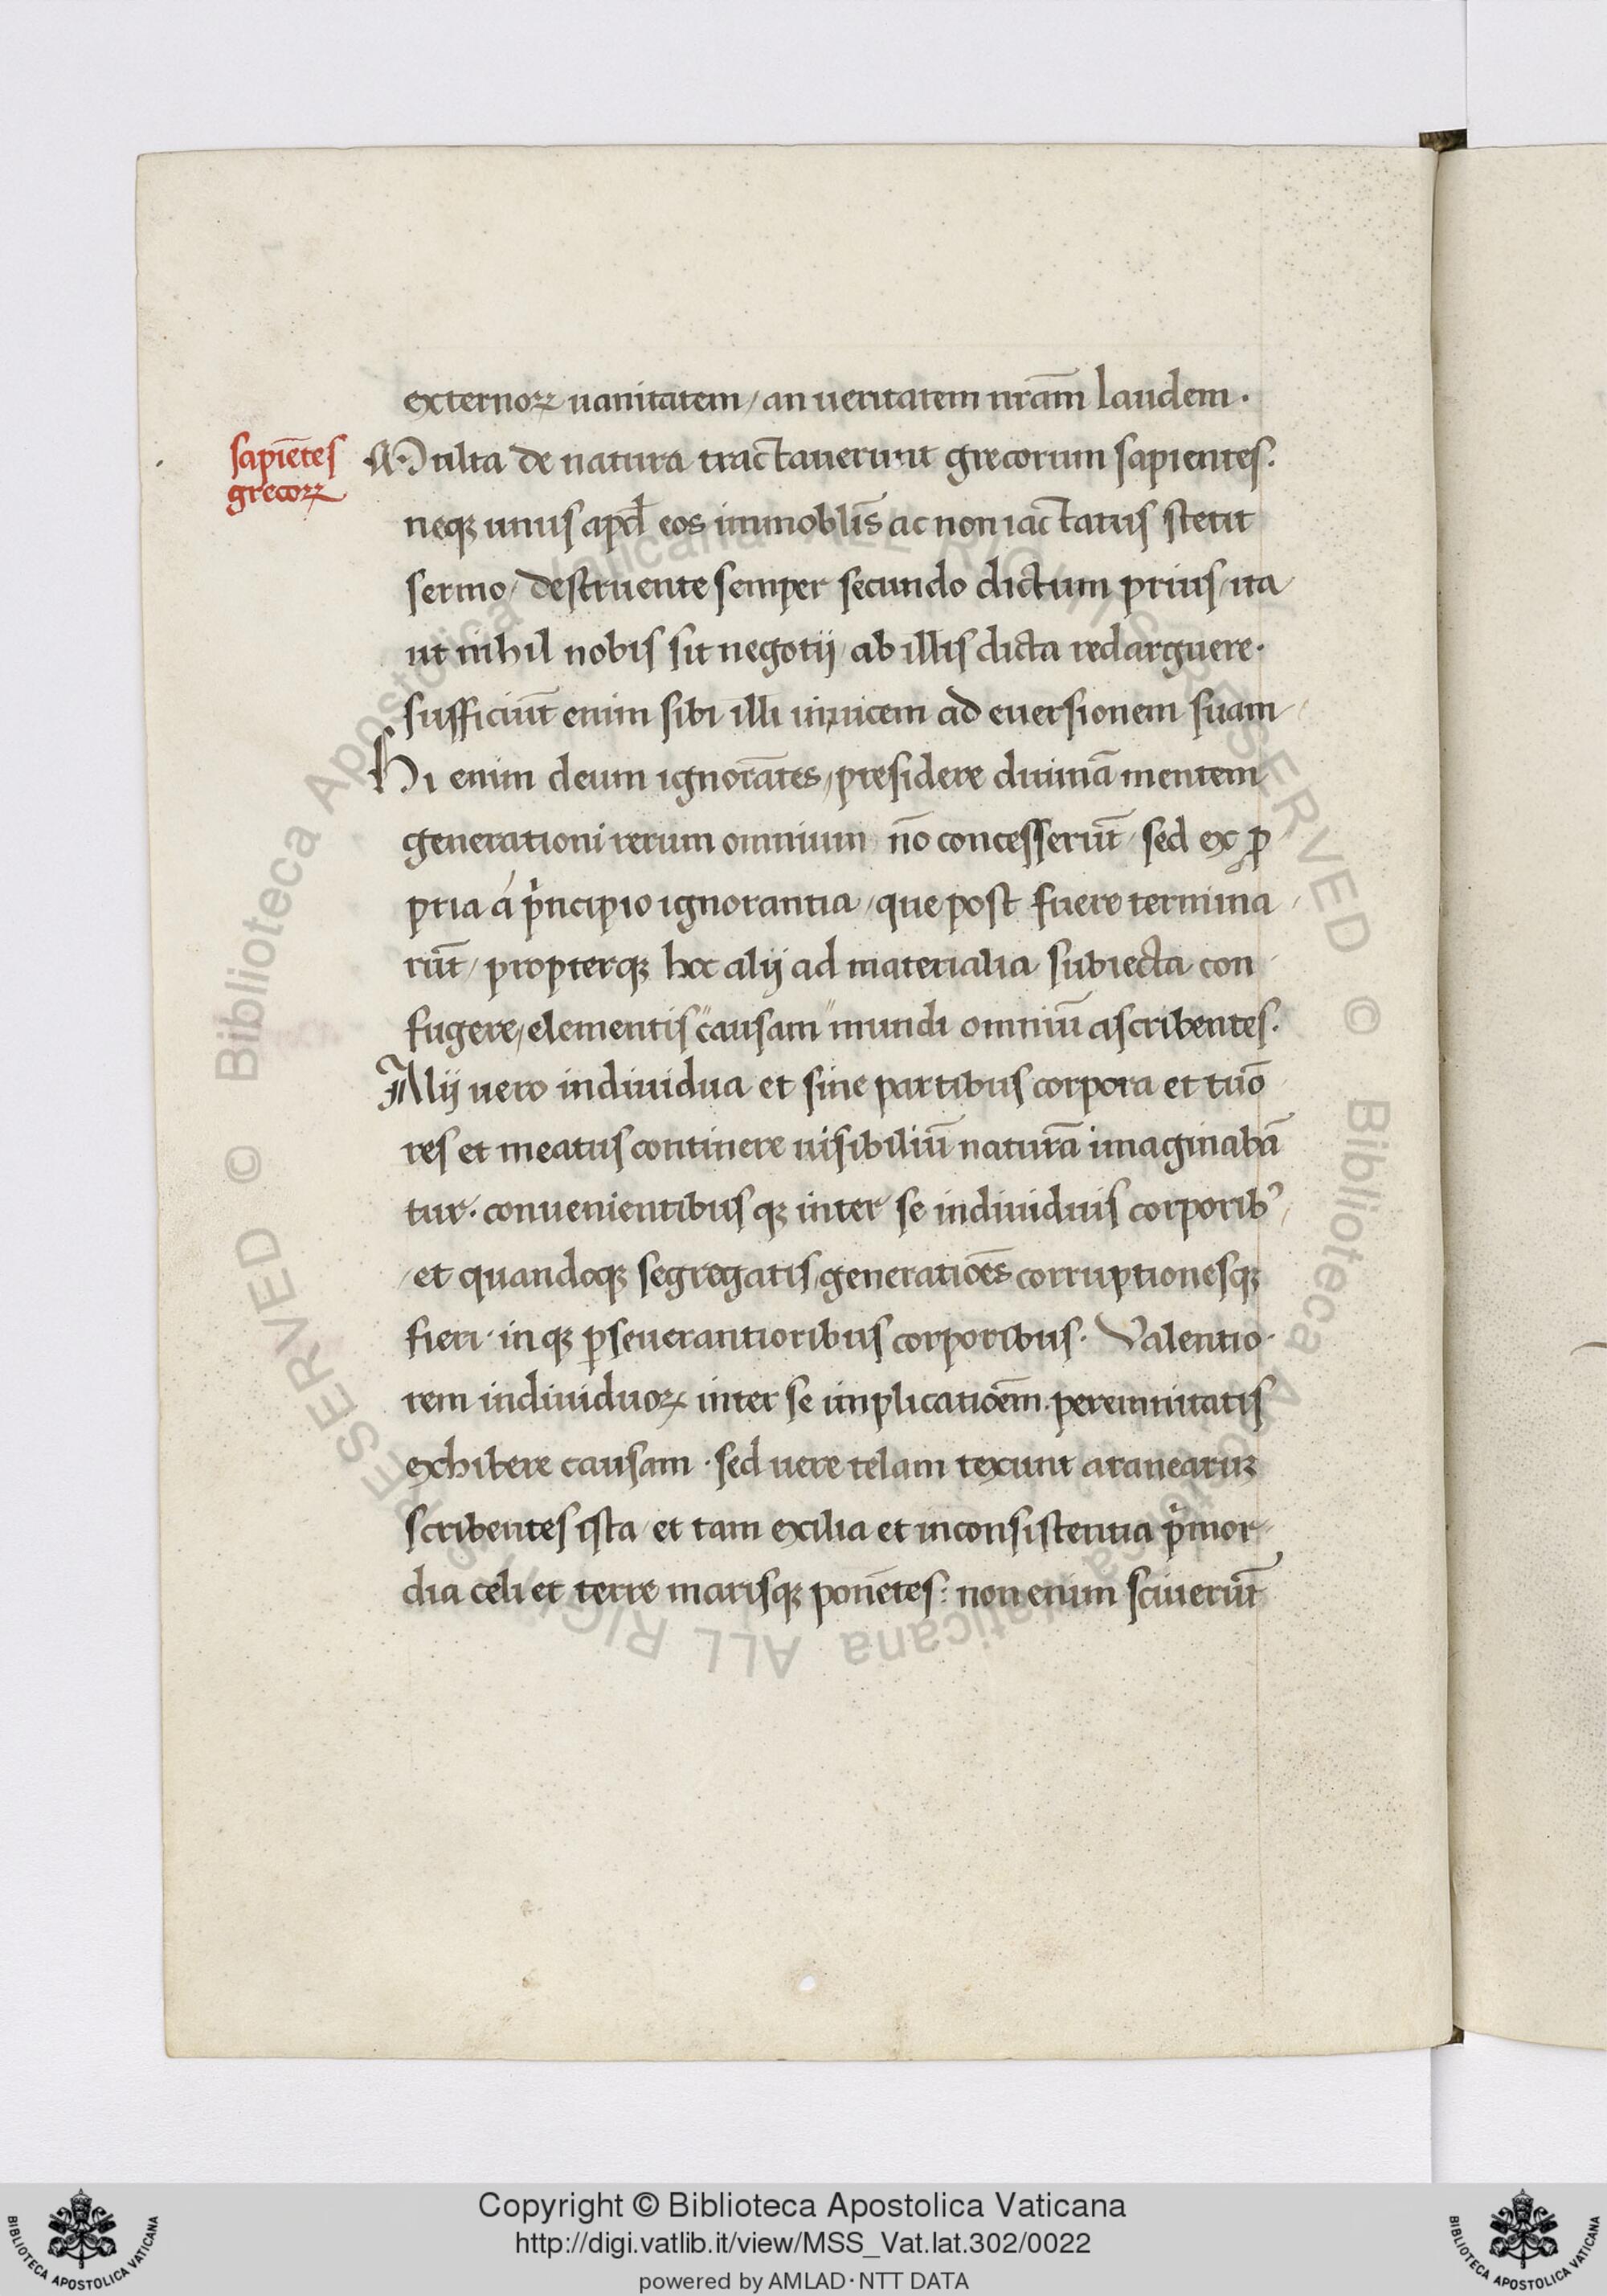 externoꝝ uanitatem / an ueritatem nr̄am laudem.
sapiētes
grecoꝝ
Multa de natura tractauerunt grecorum sapientes.
neqꝫ unus apd̄ eos immobl̄is ac non iactatus stetit
sermo / destruente semper secundo dictum prius / ita
ut nihil nobis sit negotij / ab illis dicta redarguere.
sufficiūt enim sibi illi inuicem ad euersionem suam
Hi enim deum ignorātes / presidere diuinā mentem
generationi rerum omnium nō concesserūt / sed ex ꝓ
pria á pⁱncipio ignorantia / que post fuere termina
rūt / propterqꝫ hoc alij ad materialia subiecta con
fugere / elementis "causam" mundi omniū ascribentes.
Alij uero indiuidua et sine partibus corpora et tuō
res et meatus continere uisibiliū naturā imaginabā
tur. conuenientibus qꝫ inter se indiuiduis corporibꝰ
/ et quandoqꝫ segregatis / generatiōes corruptionesqꝫ
fieri. in qꝫ ꝑseuerantioribus corporibus. Valentio
rem indiuiduoꝝ inter se implicatiōem. perennitatis
exhibere causam. sed uere telam texunt aranearuꝫ
scribentes ista / et tam exilia et inconsistentia pⁱmor
dia celi et terre marisqꝫ ponētes: non enim sciuerūt
© Biblioteca Apostolica Vaticana ALL RIGHTS RESERVED © Biblioteca Apostolica Vaticana ALL RIGHTS RESERVED
Copyright © Biblioteca Apostolica Vaticana
http://digi.vatlib.it/view/MSS_Vat.lat.302/0022
powered by AMLAD·NTT DATA
BIBLIOTECA APOSTOLICA VATICANA
BIBLIOTECA APOSTOLICA VATICANA